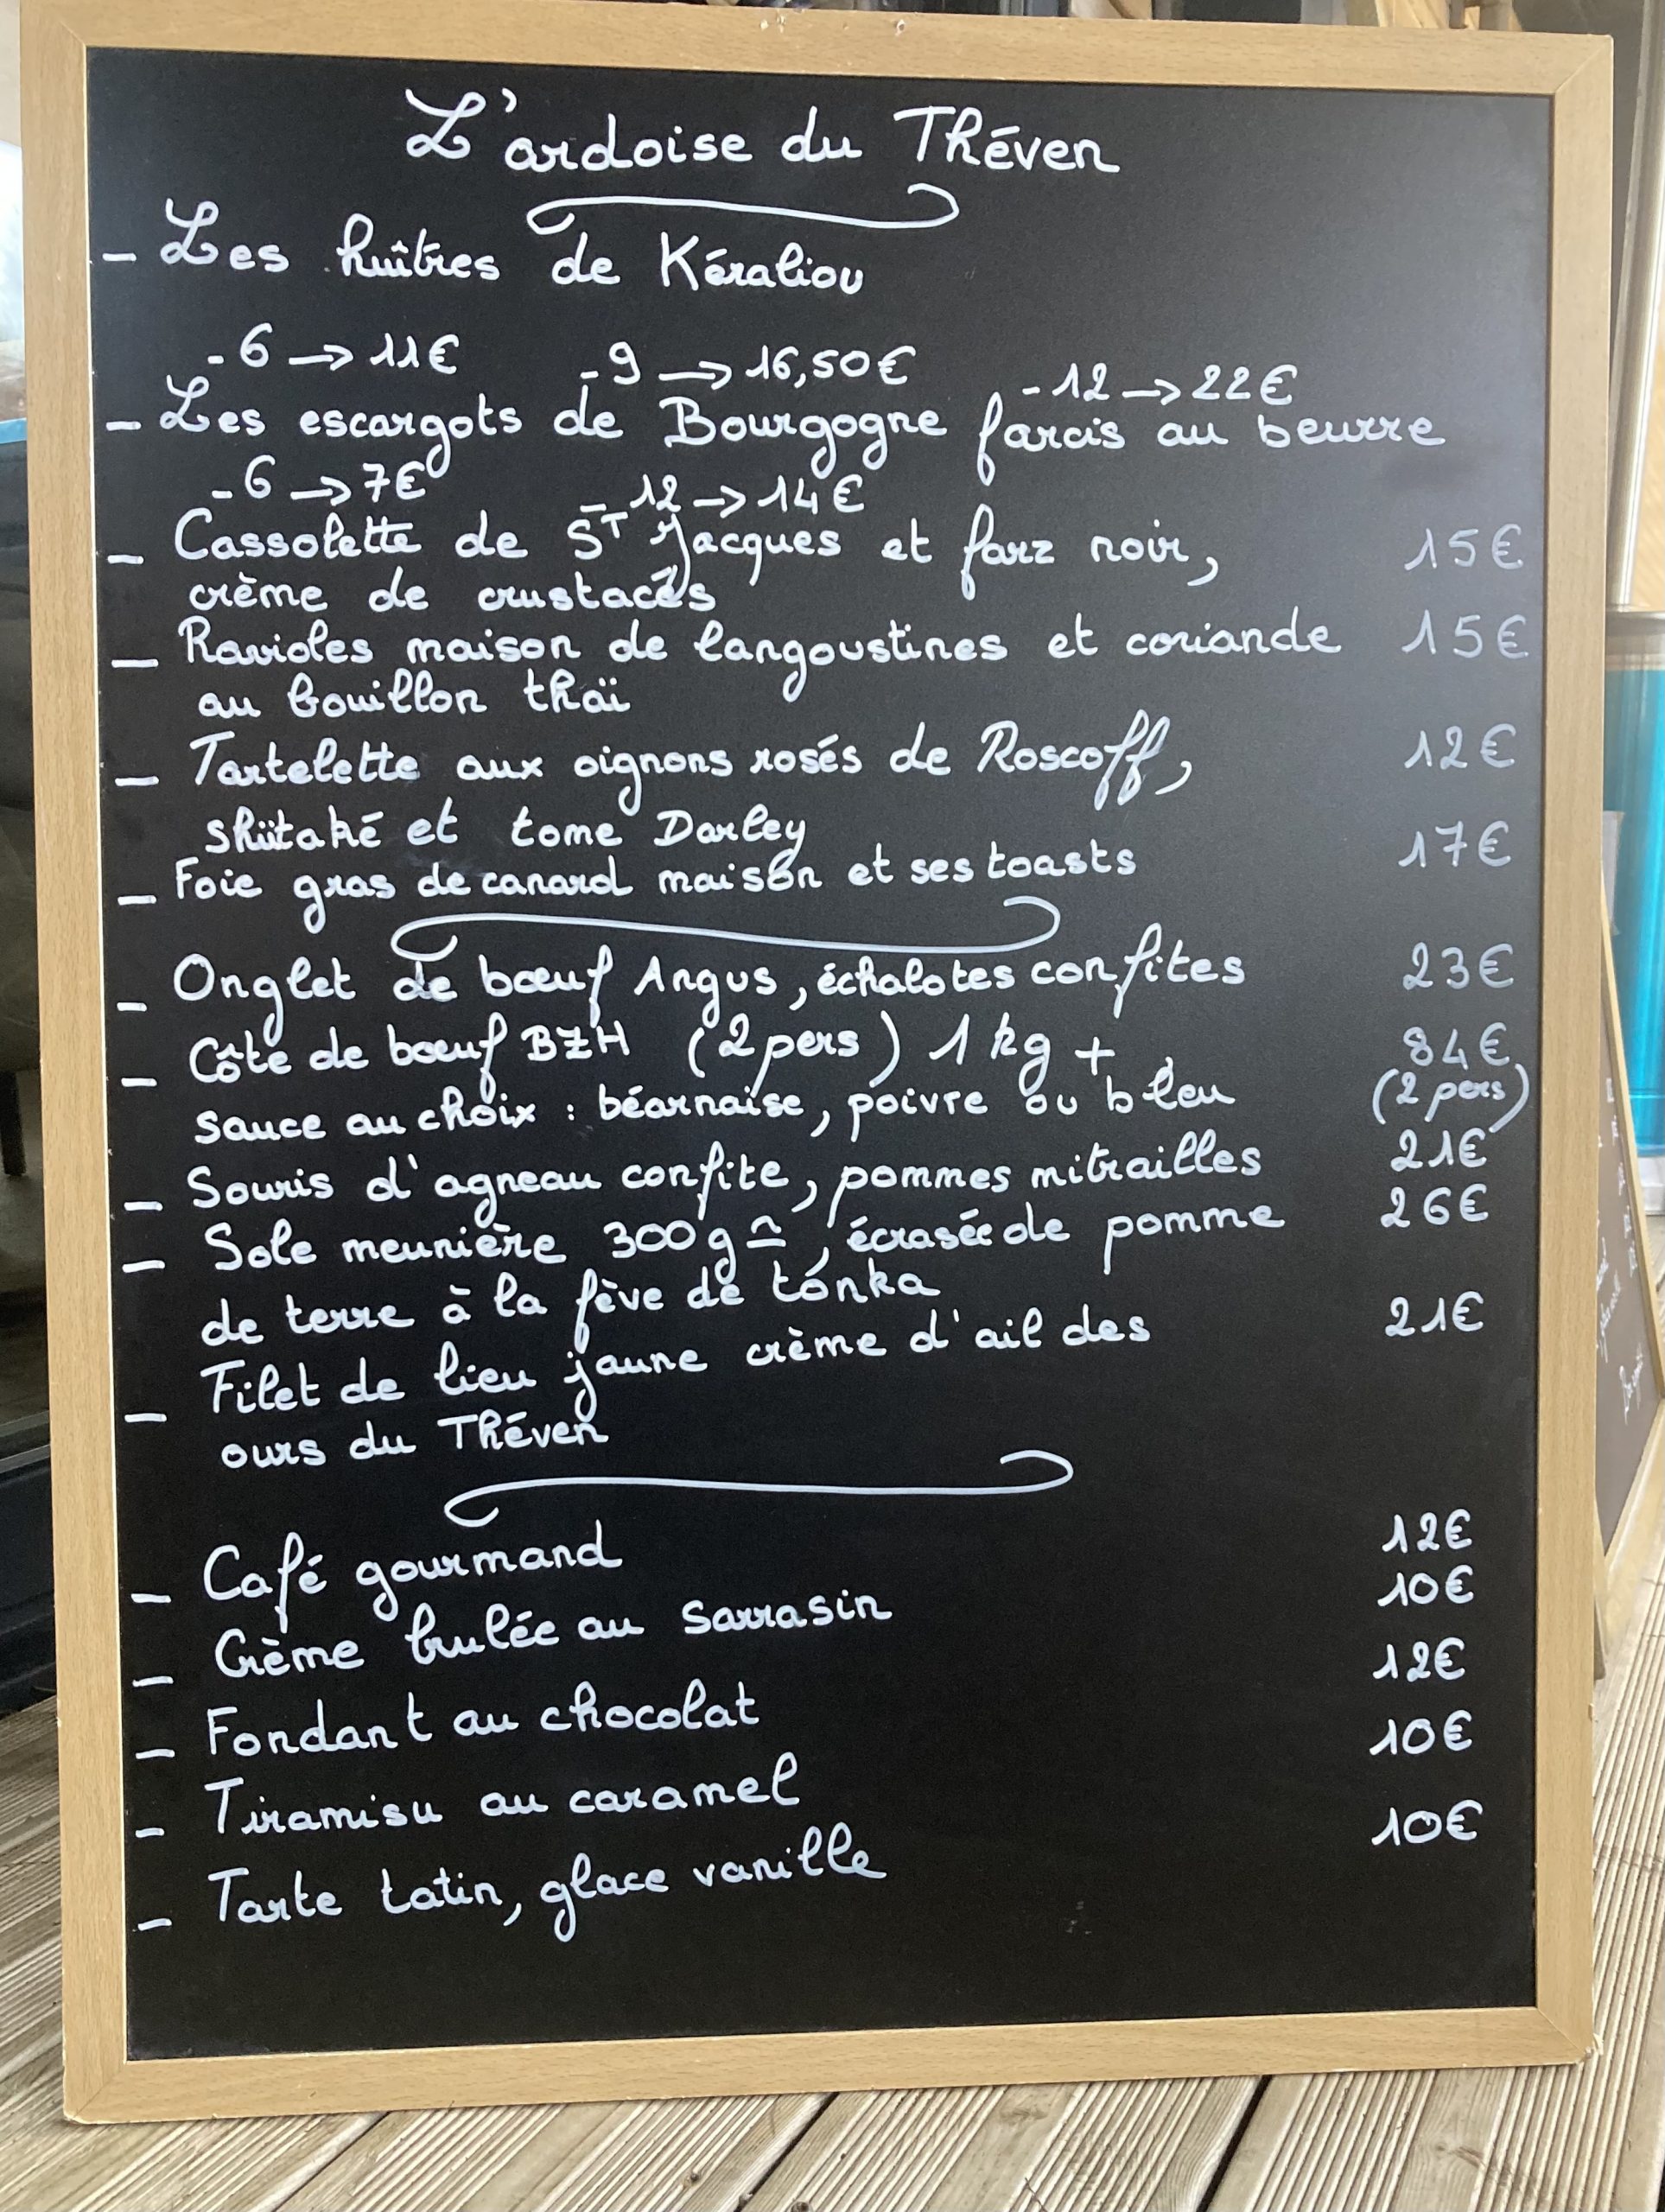 L'ardoise du Théven
- Les huîtres de Kéraliou
- 6 → 11€ - 9 → 16,50€ - 12 → 22€
- Les escargots de Bourgogne farcis au beurre
- 6 → 7€ - 12 → 14€
- Cassolette de ST Jacques et farz noir, 15€
crème de crustacés
- Ravioles maison de langoustines et coriande 15€
au bouillon thaï
- Tartelette aux oignons rosés de Roscoff, 12€
shiitaké et tome Darley
- Foie gras de canard maison et ses toasts 17€
- Onglet de bœuf Angus, échalotes confites 23€
- Côte de bœuf BZH (2 pers) 1 kg + 84€
sauce au choix : béarnaise, poivre ou bleu (2 pers)
- Souris d'agneau confite, pommes mitrailles 21€
- Sole meunière 300g ~, écrasée de pomme 26€
de terre à la fève de tonka
- Filet de lieu jaune crème d'ail des 21€
ours du Théven
- Café gourmand 12€
- Crème brulée au sarrasin 10€
- Fondant au chocolat 12€
- Tiramisu au caramel 10€
- Tarte tatin, glace vanille 10€